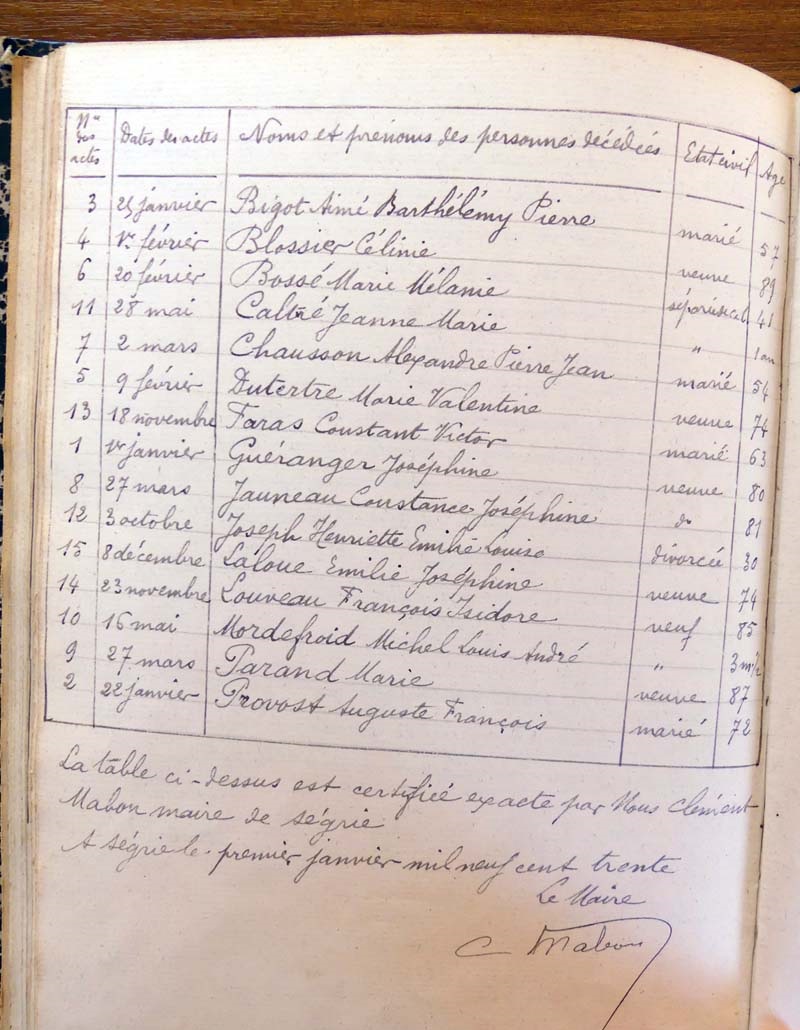 Nos des actes Dates des actes Noms et prénoms des personnes décédées Etat civil Age
3 25 janvier Bigot Aimé Barthélémy Pierre marié 57
4 1er février Blossier Célinie veuve 89
6 20 février Bossé Marie Mélanie 41
11 28 mai Caltré Jeanne Marie " 1 an
7 2 mars Chausson Alexandre Pierre Jean marié 54
5 9 février Dutertre Marie Valentine veuve 74
13 18 novembre Faras Constant Victor marié 63
1 1er janvier Guéranger Joséphine veuve 80
8 27 mars Jauneau Constance Joséphine do 81
12 3 octobre Joseph Henriette Emilie Louise divorcée 30
15 8 décembre Laloue Emilie Joséphine veuve 74
14 23 novembre Louveau François Isidore veuf 85
10 16 mai Mordefroid Michel Louis André " 3 m 1/2
9 27 mars Parand Marie veuve 87
2 22 janvier Provost Auguste François marié 72
La table ci-dessus est certifiée exacte par Nous Clément
Mabon maire de ségrie
A ségrie le premier janvier mil neuf cent trente
Le Maire
C Mabon